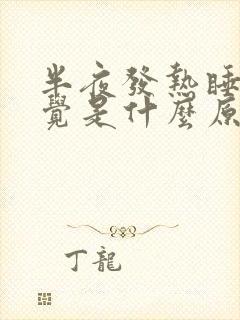 半夜發熱睡
覺是什麼原
丁龍